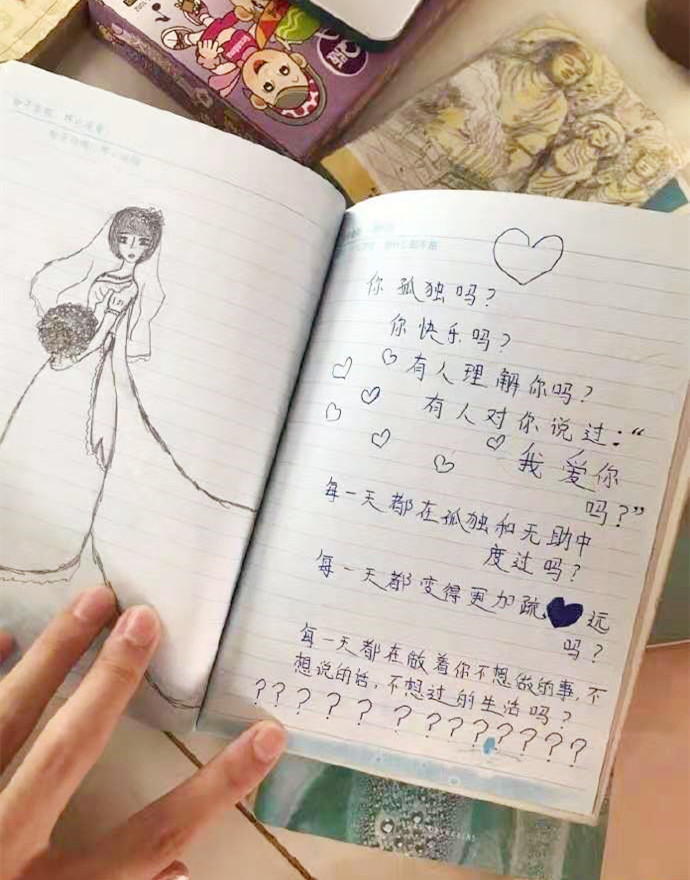 你孤独吗？
你快乐吗？
有人理解你吗？
有人对你说过：“
我爱你
吗？”
每一天都在孤独和无助中
度过吗？
每一天都变得更加疏远
吗？
每一天都在做着你不想做的事，不
想说的话，不想过的生活吗？
？？？？？？？？？？？？？？